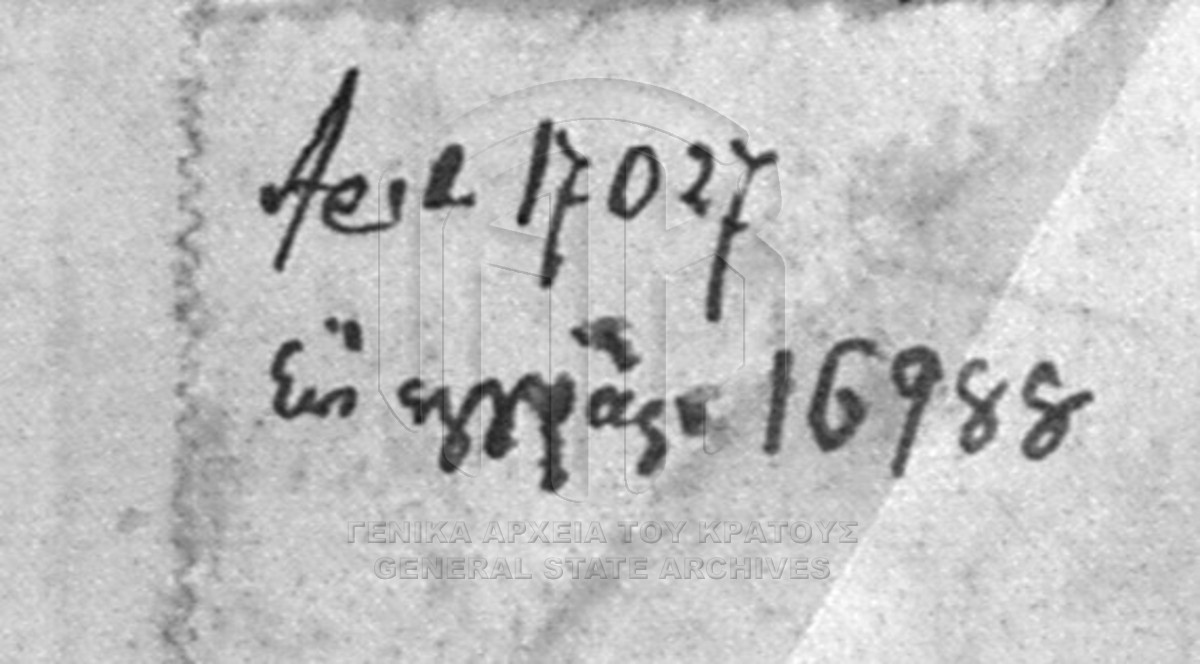 Αριθ 17027
Ἐν ἐγγράφῳ 16988
ΓΕΝΙΚΑ ΑΡΧΕΙΑ ΤΟΥ ΚΡΑΤΟΥΣ
GENERAL STATE ARCHIVES